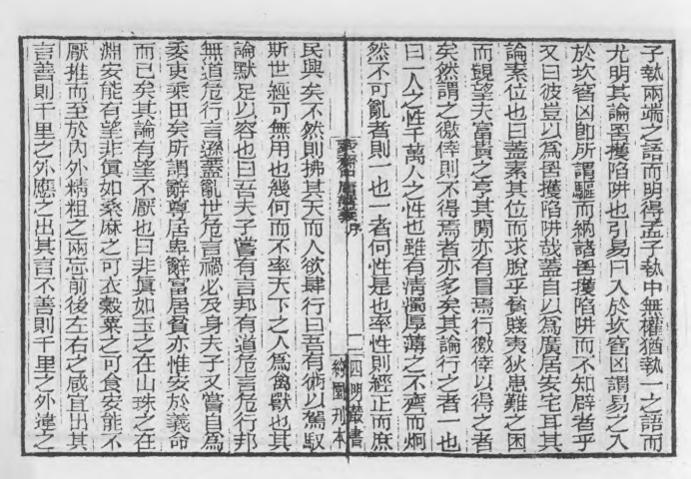 子執兩端之語而明得孟子執中無權猶執一之語而
尤明其論罟擭陷阱也引易曰入於坎窞凶謂易之入
於坎窞凶卽所謂驅而納諸罟擭陷阱而不知辟者乎
又曰彼豈以爲罟擭陷阱哉蓋自以爲廣居安宅耳其
論素位也曰蓋素其位而求脫乎貧賤夷狄患難之困
而覬望夫富貴之亨其閒亦有冒焉行徼倖以得之者
矣然謂之徼倖則不得焉者亦多矣其論行之者一也
曰一人之性千萬人之性也雖有淸濁厚薄之不齊而炯
然不可亂者則一也一者何性是也率性則經正而庶
蒙齋中庸講義 序
二
四明叢書
約園刊本
民興矣不然則拂其天而人欲肆行曰吾有術以駕馭
斯世經可無用也幾何而不率天下之人爲禽獸也其
論默足以容也曰吾夫子嘗有言邦有道危言危行邦
無道危行言遜蓋亂世危言禍必及身夫子又嘗自爲
委吏乘田矣所謂辭尊居卑辭富居貧亦惟安於義命
而已矣其論有望不厭也曰非眞如玉之在山珠之在
淵安能有望非眞如桑麻之可衣穀粟之可食安能不
厭推而至於內外精粗之兩忘前後左右之咸宜出其
言善則千里之外應之出其言不善則千里之外違之